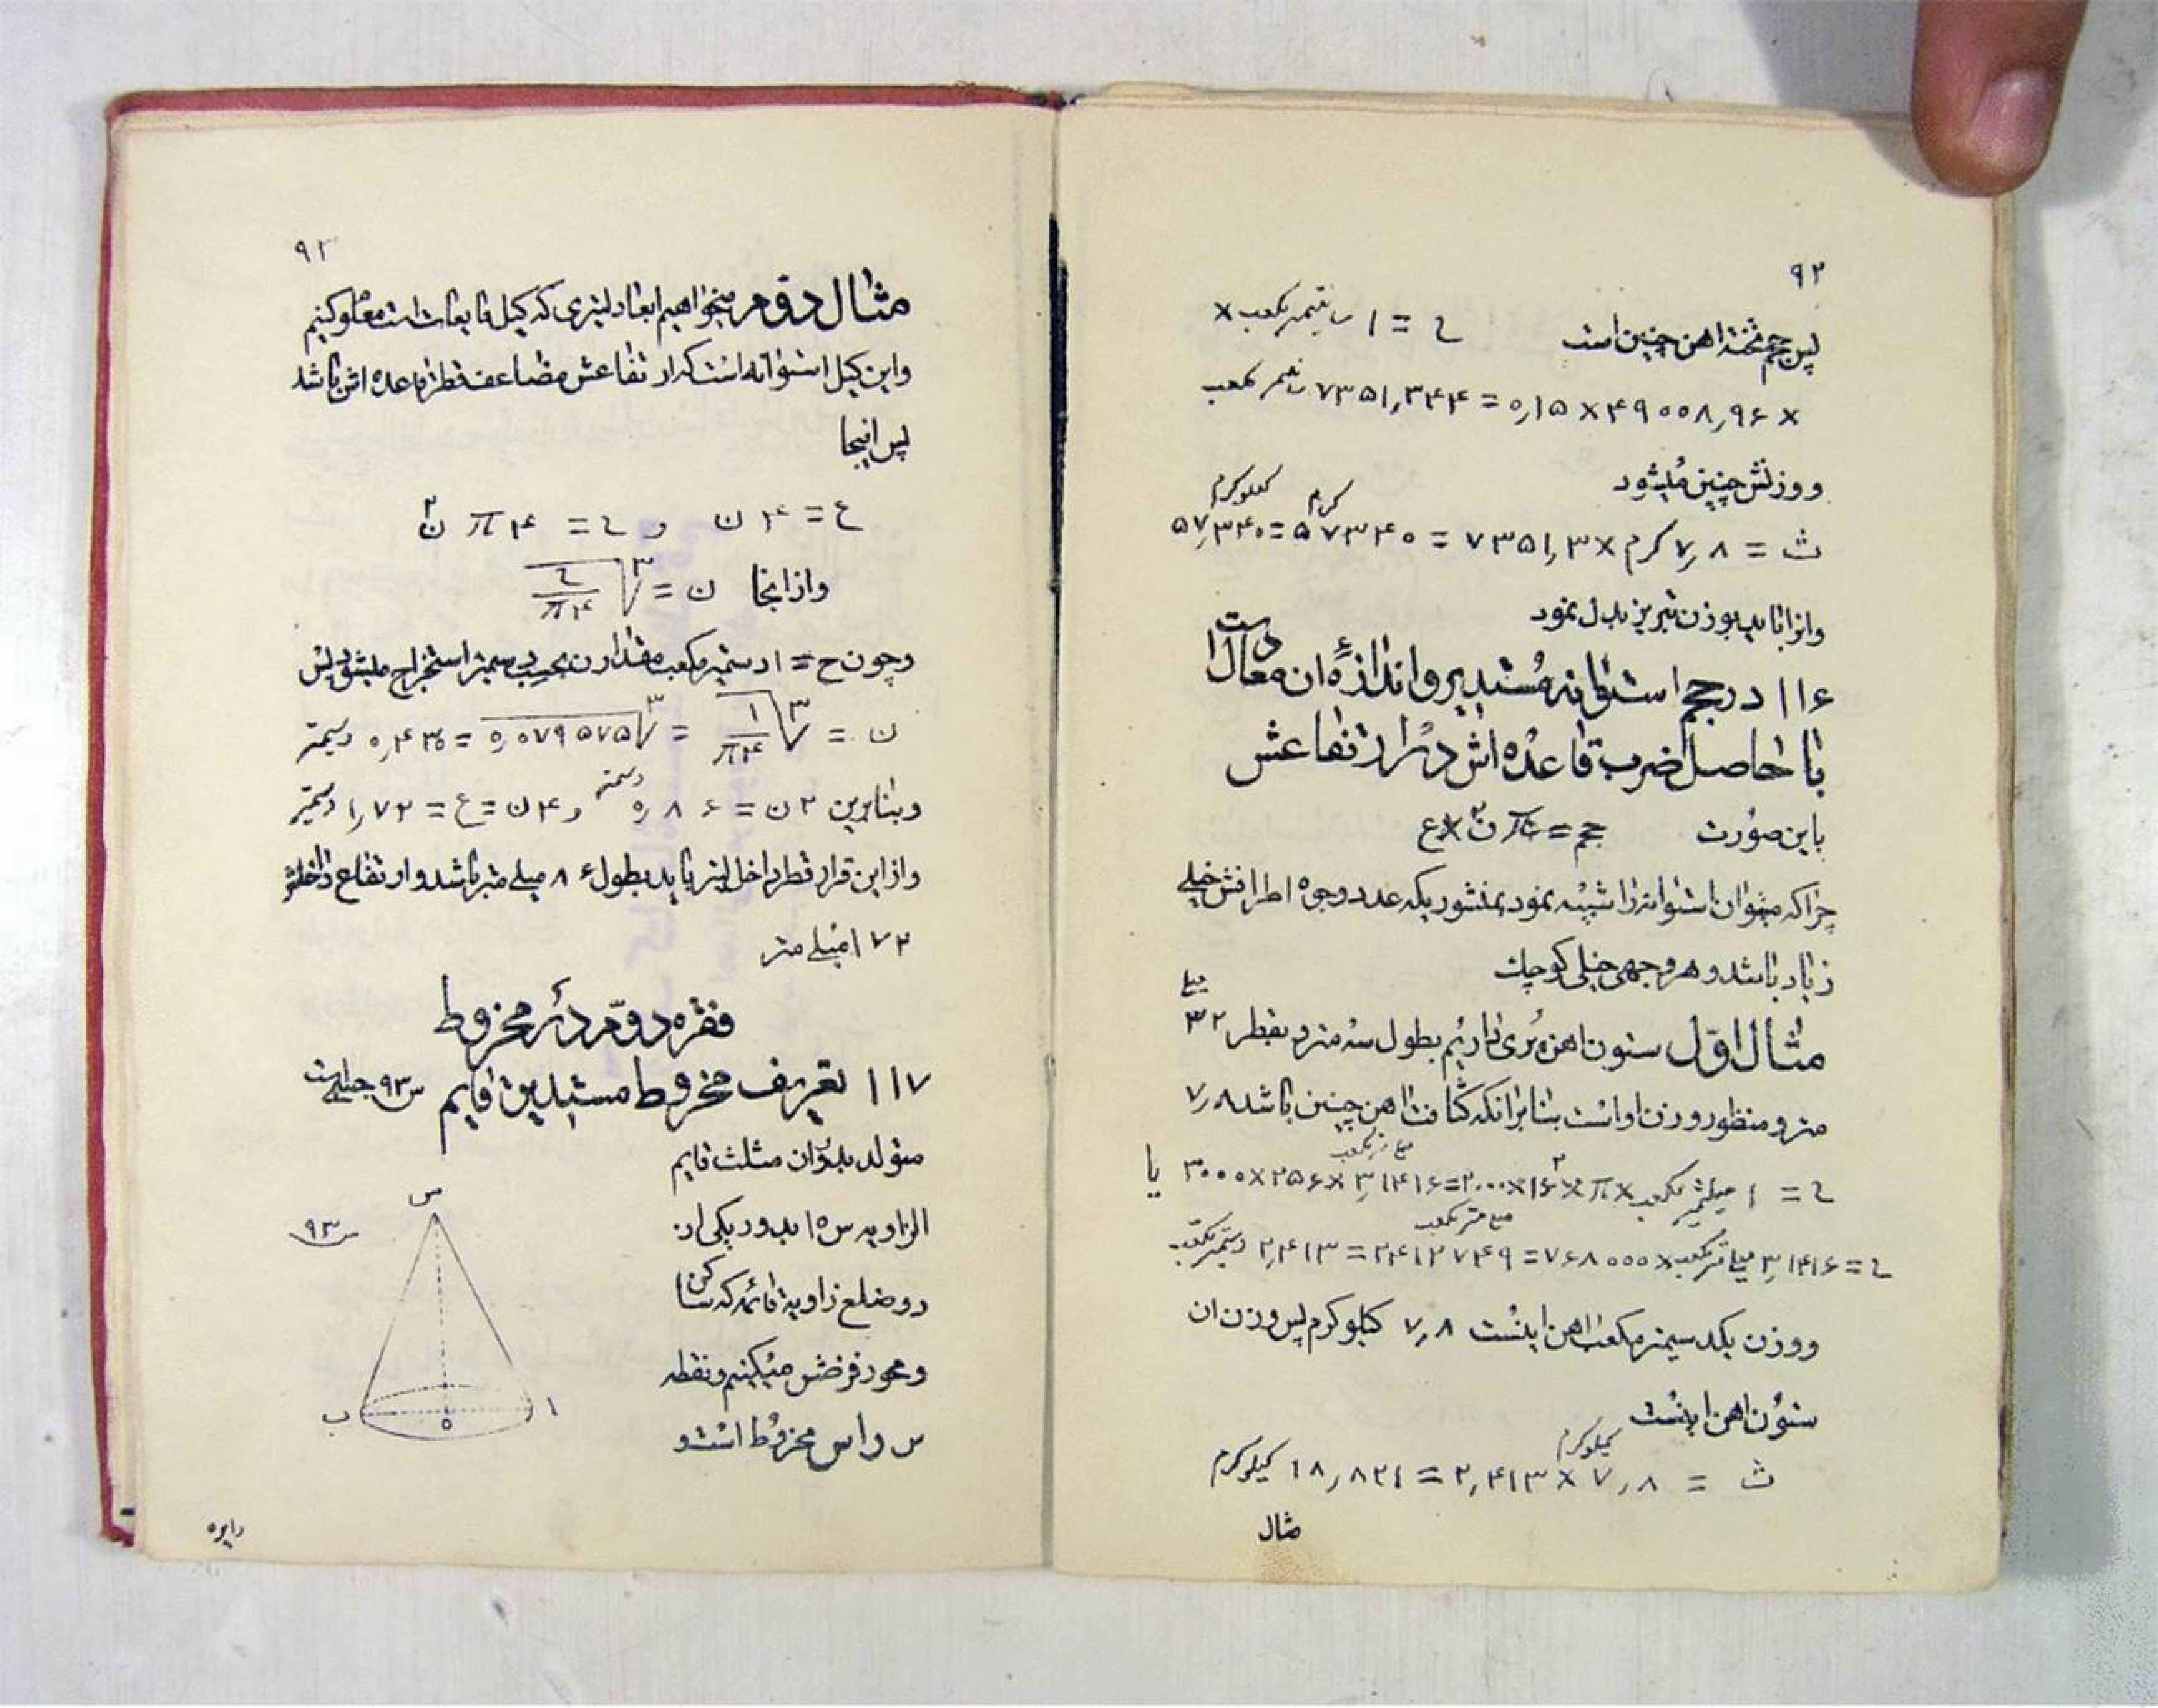 ۹۲
پس حجم تخته اهن چنین است ح = ۱ سانتیمتر مکعب ×
× ۴۹۰۰۸٫۹۶ × ۰٫۱۵ = ۷۳۵۱٫۳۴۴ سانتیمتر مکعب
و وزنش چنین میشود
ث = ۷٫۸ کرم × ۷۳۵۱٫۳ = ۵۷۳۴۰ کرم = ۵۷٫۳۴۰ کیلوکرم
وانرا باید بوزن تبریز بدل نمود
۱۱۶ در حجم استوانه مستدیر و اندازهٔ ان معادل است
با حاصل ضرب قاعده اش در ارتفاعش
باین صورت حجم = π ن۲ × ع
چرا که میتوان استوانه را شبیه نمود بمنشوریکه عدد وجوه اطرافش خیلی
زیاد باشد و هر وجهی خیلی کوچک
مثال اوّل ستون اهن پُری داریم بطول سه متر و بقطر ۳۲ میلی
متر و منظور وزن او است بنابر انکه کثافت اهن چنین باشد ۷٫۸
ح = ۱ میلیمتر مکعب × π × ۱۶۲ × ۳۰۰۰ = ۳٫۱۴۱۶ میلی متر مکعب × ۲۵۶ × ۳۰۰۰ یا
ح = ۳٫۱۴۱۶ میلی متر مکعب × ۷۶۸۰۰۰ = ۲۴۱۲۷۴۹ میلی متر مکعب = ۲٫۴۱۳ دسیمتر مکعب
و وزن یکدسیمتر مکعب اهن اینست ۷٫۸ کیلوکرم پس وزن ان
ستون اهن اینست
ث = ۷٫۸ کیلوکرم × ۲٫۴۱۳ = ۱۸٫۸۲۱ کیلوکرم
مثال
۹۳
مثال دوّم میخواهیم ابعاد لیتری که کیل مایعات است معلوم کنیم
و این کیل استوانه است که ارتفاعش مضاعف قطر قاعده اش باشد
پس اینجا
ع = ۴ ن و ح = ۴ π ن۲
و از انجا ن = ۳√ح/۴π
و چون ح = ۱ دسیمتر مکعب مقدار ن بحسب دسیمتر استخراج میشود پس
ن = ۳√۱/۴π = ۳√۰٫۰۷۹۵۷۵ = ۰٫۴۳۰ دسیمتر
و بنابرین ۲ ن = ۰٫۸۶ دسیمتر و ۴ ن = ع = ۱٫۷۲ دسیمتر
و از این قرار قطر داخل لیتر باید بطول ۸۶ میلی متر باشد و ارتفاع داخلش
۱۷۲ میلی متر
فقره دوّم در مخروط
۱۱۷ تعریف مخروط مستدیر قایم س ۹۳ جسمی است
متولد بدوران مثلث قایم
الزاویه س ه ا بدور یکی از
دو ضلع زاویه قائمه که ساکن
و محور فرضش میکنیم و نقطه
س راس مخروط است و
س
س ۹۳
ب ه ا
دایره